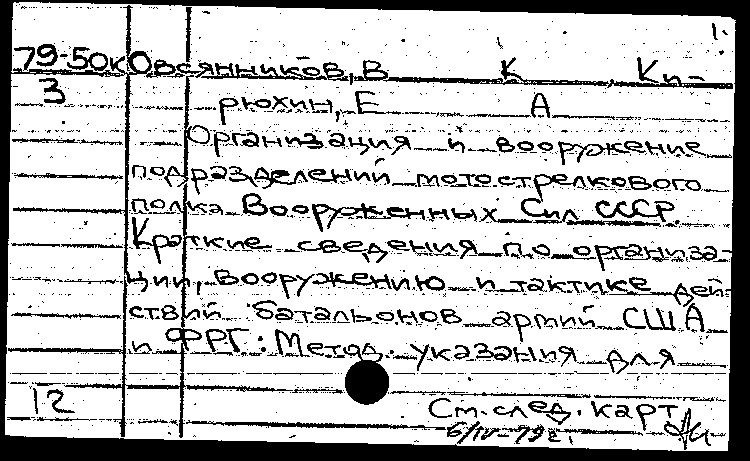 1.
79-50к Овсянников, В К , Ки-
3 рюхин, Е А
Организация и вооружение
подразделений мотострелкового
полка Вооруженных Сил СССР.
Краткие сведения по организа-
ции, вооружению и тактике дей-
ствий батальонов армий США
и ФРГ: Метод. указания для
12 См. след. карт
6/IV-79г.